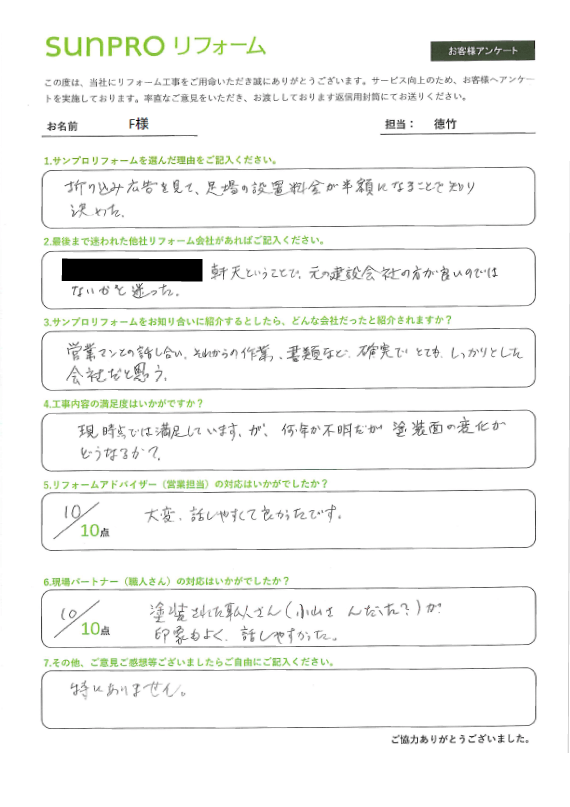 SUNPRO リフォーム
お客様アンケート
この度は、当社にリフォーム工事をご用命いただき誠にありがとうございます。サービス向上のため、お客様へアンケー
トを実施しております。率直なご意見をいただき、お渡ししております返信用封筒にてお送りください。
お名前 F様 担当： 徳竹
1.サンプロリフォームを選んだ理由をご記入ください。
折り込み広告を見て、足場の設置料金が半額になることで知り
決めた.
2.最後まで迷われた他社リフォーム会社があればご記入ください。
軒天ということで、元の建設会社の方が良いのでは
ないかと迷った。
3.サンプロリフォームをお知り合いに紹介するとしたら、どんな会社だったと紹介されますか？
営業マンとの話し合い、それからの作業、書類など、確実で とても、しっかりとした
会社だと思う。
4.工事内容の満足度はいかがですか？
現時点では満足しています、が、何年か不明だが 塗装面の変化が
どうなるか？.
5.リフォームアドバイザー（営業担当）の対応はいかがでしたか？
10/10点 大変、話しやすくて良かったです。
6.現場パートナー（職人さん）の対応はいかがでしたか？
10/10点 塗装された職人さん（小山さんだった？）が
印象もよく、話しやすかった。
7.その他、ご意見ご感想等ございましたらご自由にご記入ください。
特にありません。
ご協力ありがとうございました。